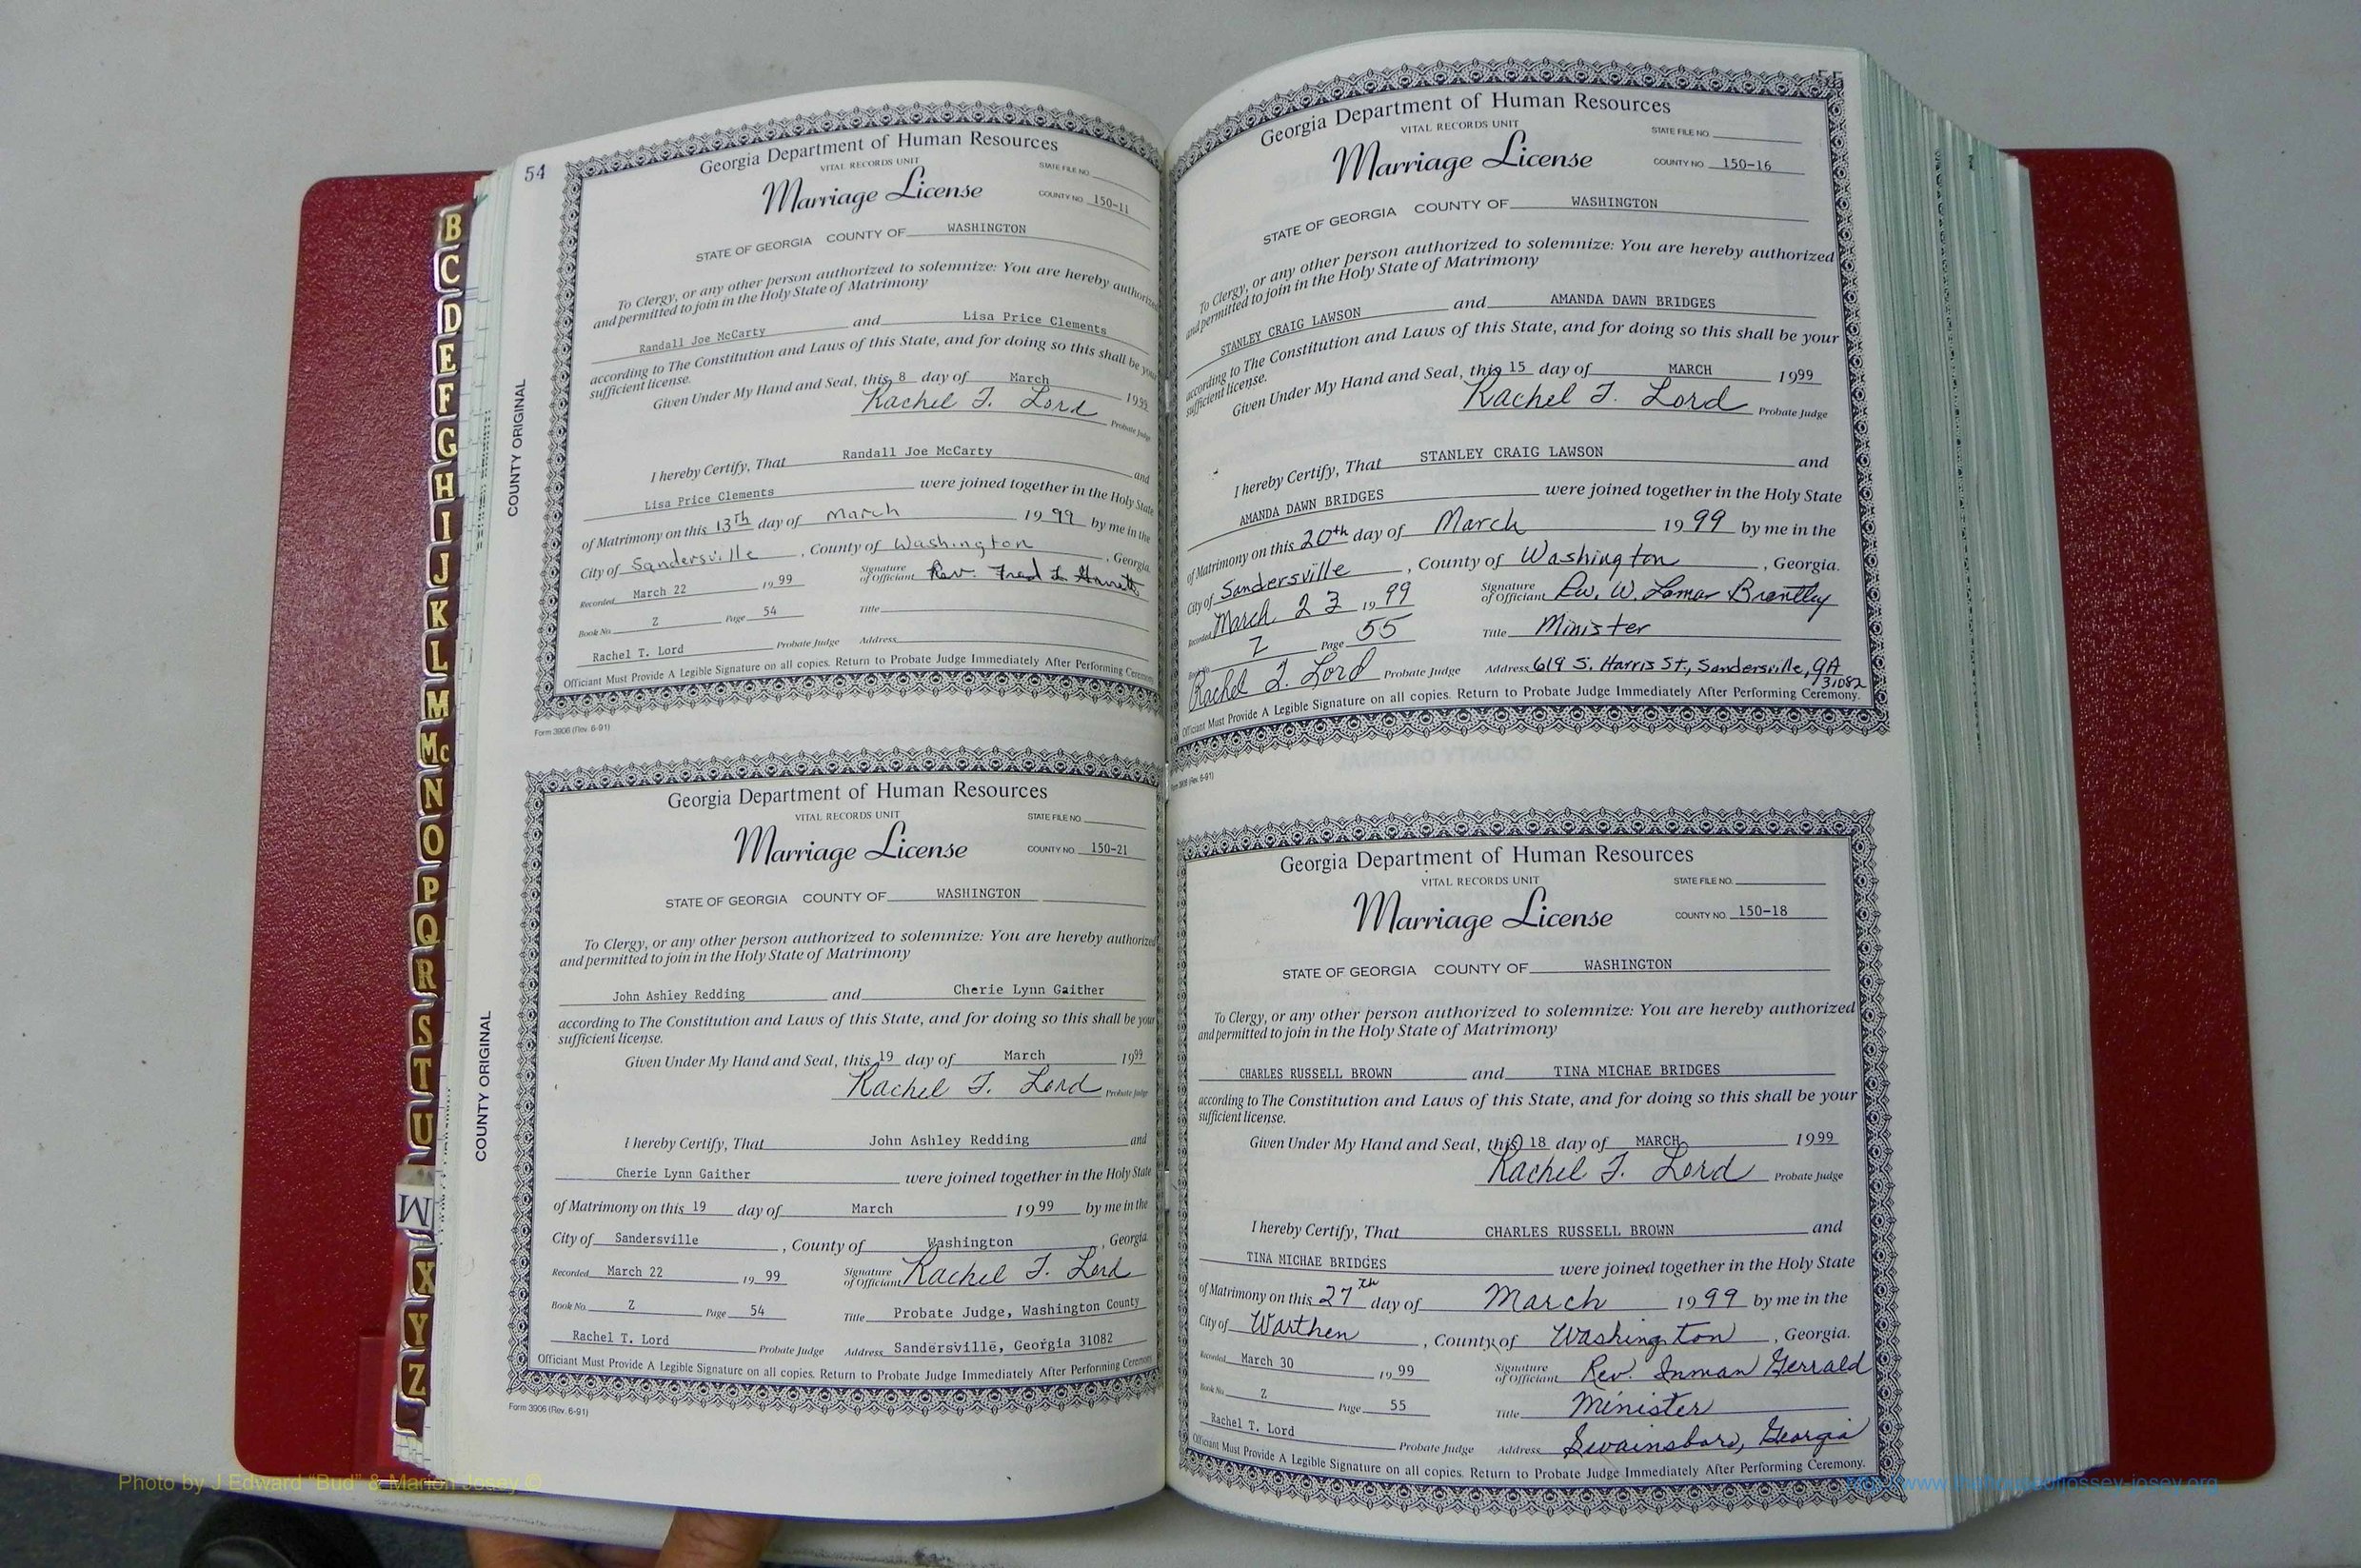 54
Georgia Department of Human Resources
VITAL RECORDS UNIT
STATE FILE NO.
Marriage License
COUNTY NO. 150-11
STATE OF GEORGIA COUNTY OF WASHINGTON
To Clergy, or any other person authorized to solemnize: You are hereby authorized
and permitted to join in the Holy State of Matrimony
Randall Joe McCarty and Lisa Price Clements
according to The Constitution and Laws of this State, and for doing so this shall be your
sufficient license.
Given Under My Hand and Seal, this 8 day of March 1999
Rachel T. Lord Probate Judge
I hereby Certify, That Randall Joe McCarty and
Lisa Price Clements were joined together in the Holy State
of Matrimony on this 13th day of March 1999 by me in the
City of Sandersville, County of Washington, Georgia.
Recorded March 22 1999 Signature of Officiant Rev. Fred L.
Book No. Z Page 54 Title
Rachel T. Lord Probate Judge Address
Officiant Must Provide A Legible Signature on all copies. Return to Probate Judge Immediately After Performing Ceremony.
Form 3906 (Rev. 6-91)
COUNTY ORIGINAL
Georgia Department of Human Resources
VITAL RECORDS UNIT
STATE FILE NO.
Marriage License
COUNTY NO. 150-21
STATE OF GEORGIA COUNTY OF WASHINGTON
To Clergy, or any other person authorized to solemnize: You are hereby authorized
and permitted to join in the Holy State of Matrimony
John Ashley Redding and Cherie Lynn Gaither
according to The Constitution and Laws of this State, and for doing so this shall be your
sufficient license.
Given Under My Hand and Seal, this 19 day of March 1999
Rachel T. Lord Probate Judge
I hereby Certify, That John Ashley Redding and
Cherie Lynn Gaither were joined together in the Holy State
of Matrimony on this 19 day of March 1999 by me in the
City of Sandersville, County of Washington, Georgia
Recorded March 22 1999 Signature of Officiant Rachel T. Lord
Book No. Z Page 54 Title Probate Judge, Washington County
Rachel T. Lord Probate Judge Address Sandersville, Georgia 31082
Officiant Must Provide A Legible Signature on all copies. Return to Probate Judge Immediately After Performing Ceremony
Form 3906 (Rev. 6-91)
COUNTY ORIGINAL
55
Georgia Department of Human Resources
VITAL RECORDS UNIT
STATE FILE NO.
Marriage License
COUNTY NO. 150-16
STATE OF GEORGIA COUNTY OF WASHINGTON
To Clergy, or any other person authorized to solemnize: You are hereby authorized
and permitted to join in the Holy State of Matrimony
STANLEY CRAIG LAWSON and AMANDA DAWN BRIDGES
according to The Constitution and Laws of this State, and for doing so this shall be your
sufficient license.
Given Under My Hand and Seal, this 15 day of MARCH 1999
Rachel T. Lord Probate Judge
I hereby Certify, That STANLEY CRAIG LAWSON and
AMANDA DAWN BRIDGES were joined together in the Holy State
of Matrimony on this 20th day of March 1999 by me in the
City of Sandersville, County of Washington, Georgia.
Recorded March 23 1999 Signature of Officiant Rev. W. Lamar Brantley
Book No. Z Page 55 Title Minister
Rachel T. Lord Probate Judge Address 619 S. Harris St., Sandersville, GA 31082
Officiant Must Provide A Legible Signature on all copies. Return to Probate Judge Immediately After Performing Ceremony.
Form 3906 (Rev. 6-91)
Georgia Department of Human Resources
VITAL RECORDS UNIT
STATE FILE NO.
Marriage License
COUNTY NO. 150-18
STATE OF GEORGIA COUNTY OF WASHINGTON
To Clergy, or any other person authorized to solemnize: You are hereby authorized
and permitted to join in the Holy State of Matrimony
CHARLES RUSSELL BROWN and TINA MICHAE BRIDGES
according to The Constitution and Laws of this State, and for doing so this shall be your
sufficient license.
Given Under My Hand and Seal, this 18 day of MARCH 1999
Rachel T. Lord Probate Judge
I hereby Certify, That CHARLES RUSSELL BROWN and
TINA MICHAE BRIDGES were joined together in the Holy State
of Matrimony on this 27th day of March 1999 by me in the
City of Warthen, County of Washington, Georgia.
Recorded March 30 1999 Signature of Officiant Rev. Inman Gerrald
Book No. Z Page 55 Title Minister
Rachel T. Lord Probate Judge Address Swainsboro, Georgia
Officiant Must Provide A Legible Signature on all copies. Return to Probate Judge Immediately After Performing Ceremony.
B
C
D
E
F
G
H
I
J
K
L
M
Mc
N
O
P
Q
R
S
T
U
M
X
Y
Z
Photo by J Edward "Bud" & Marion Josey ©
http://www.thehouseofjossey-josey.org